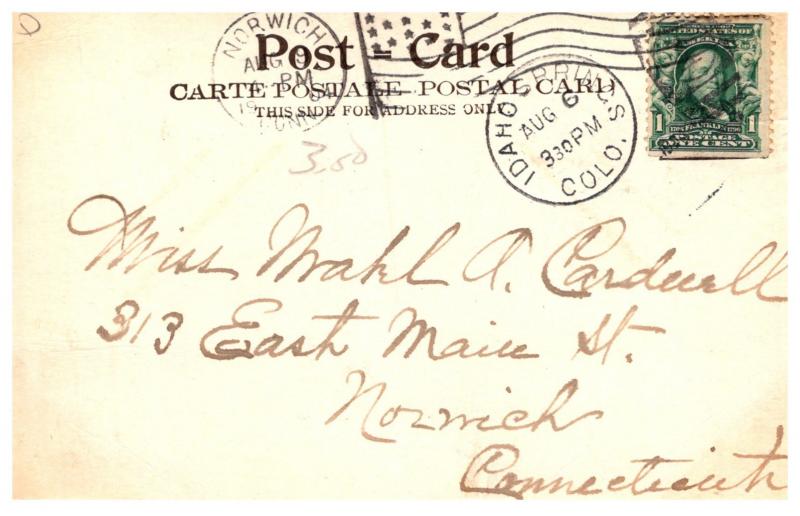 NORWICH
AUG 9
PM
CONN
Post = Card
CARTE POSTALE - POSTAL CARD
THIS SIDE FOR ADDRESS ONLY
IDAHO SPRINGS
AUG 6
330 PM
COLO.
UNITED STATES OF
AMERICA
1 FRANKLIN 1
POSTAGE
ONE CENT
3.50
Miss Mahl A. Cardwell
313 East Main St.
Norwich
Connecticut